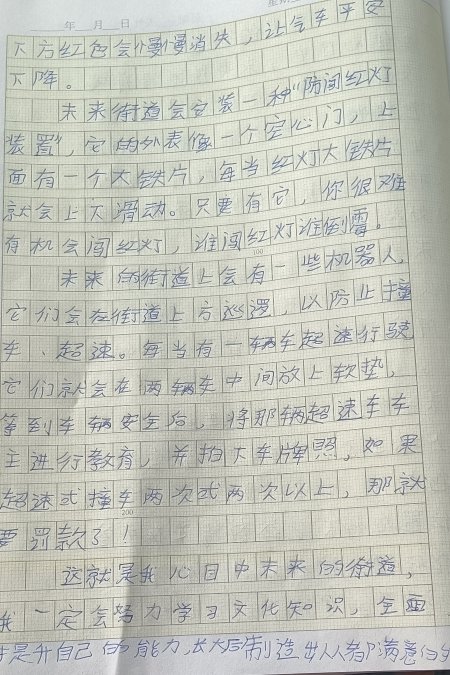 年 月 日
下方红色会慢慢消失，让气车平安
下降。
未来街道会安装一种“防闯红灯
装置”，它的外表像一个空心门，上
面有一个大铁片，每当红灯大铁片
就会上下滑动。只要有它，你很难
有机会闯红灯，谁闯红灯谁倒霉。
100
未来的街道上会有一些机器人，
它们会在街道上方巡逻，以防止撞
车、超速。每当有一辆车超速行驶
它们就会在两辆车中间放上软垫，
等到车辆安全后，将那辆超速车车
主进行教育，并拍下车牌照，如果
超速或撞车两次或两次以上，那就
200
要罚款了！
这就是我心目中未来的街道，
我一定会努力学习文化知识，全面
提升自己的能力，长大后制造出人人都满意的